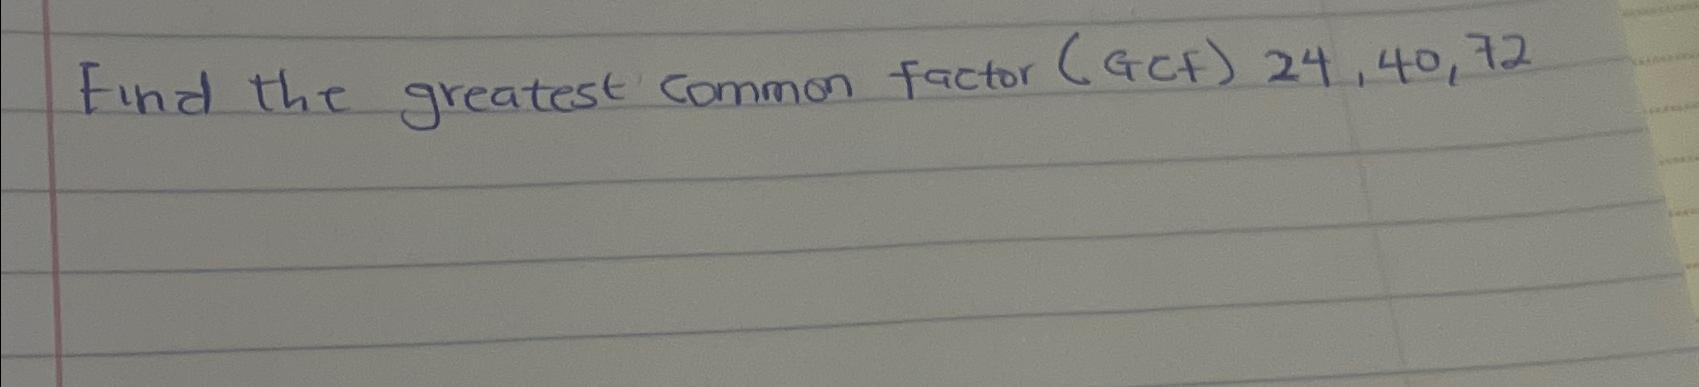 Find the greatest common factor (GCF) 24, 40, 72